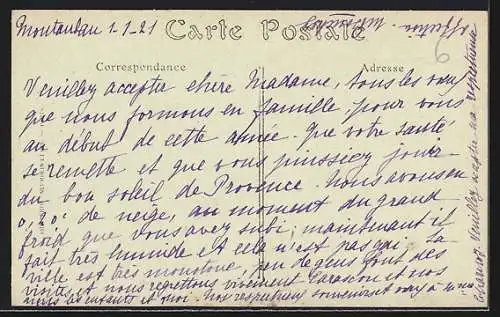 Montauban 1-1-21
Carte Postale
Correspondance
Adresse
Veuillez accepter chère Madame, tous les vœux
que nous formons en famille, pour vous
au début de cette année. Que votre santé
se remette et que vous puissiez jouir
du bon soleil de Provence. Nous avons eu
de neige, au moment du grand
froid que vous avez subi; maintenant il
fait très humide et cela n'est pas gai. La
ville est très monotone, peu de gens font des
visites et nous regrettons vivement Tarascon et nos
les enfants et moi. nos respectueux souvenirs et
Veuillez accepter ma respectueuse